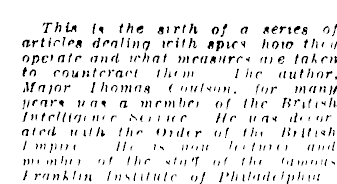 This is the sixth of a series of
articles dealing with spies how they
operate and what measures are taken
to counteract them The author,
Major Thomas Coulson, for many
years was a member of the British
Intelligence Service He was decor
ated with the Order of the British
Empire He is now lecturer and
member of the staff of the famous
Franklin Institute of Philadelphia